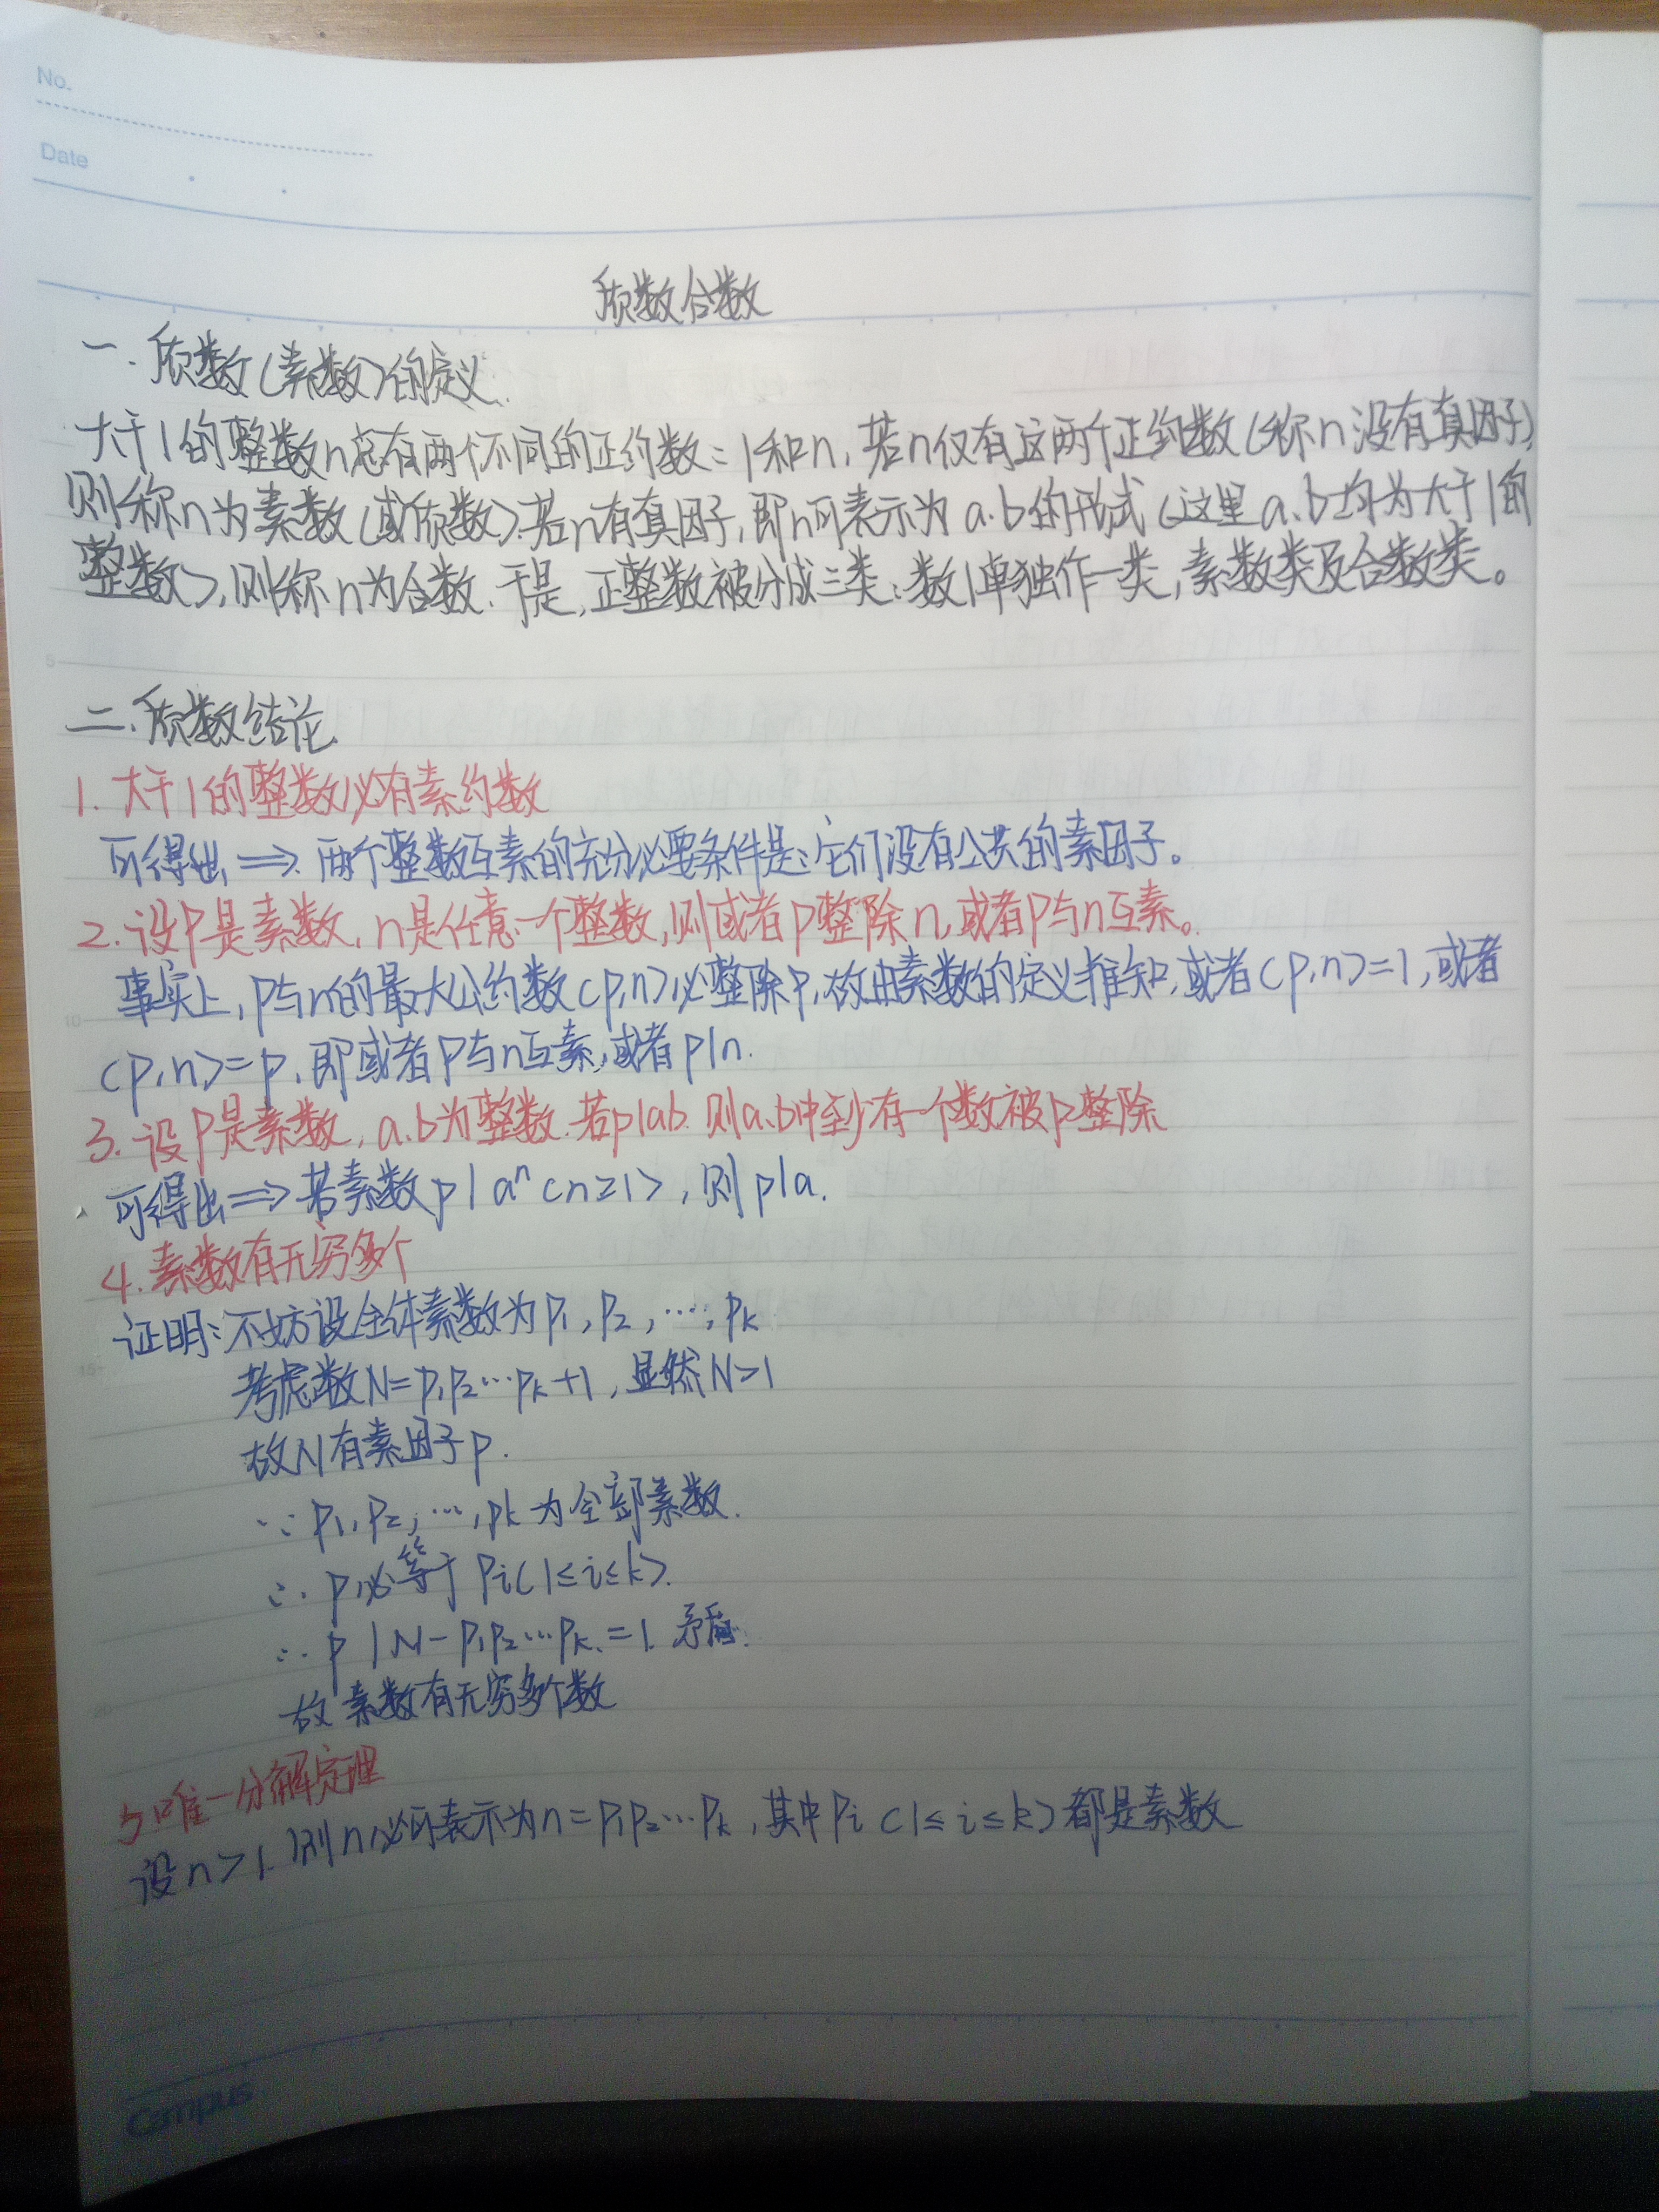 No.
Date
质数合数
一.质数(素数)的定义.
大于1的整数n总有两个不同的正约数:1和n,若n仅有这两个正约数(称n没有真因子)
则称n为素数(或质数).若n有真因子,即n可表示为a.b的形式(这里a.b均为大于1的
整数),则称n为合数.于是,正整数被分成三类:数1单独作一类,素数类及合数类。
二.质数结论.
1.大于1的整数必有素约数
可得出⟹两个整数互素的充分必要条件是:它们没有公共的素因子。
2.设P是素数,n是任意一个整数,则或者P整除n,或者P与n互素。
事实上,p与n的最大公约数(p,n)必整除p,故由素数的定义推知,或者(p,n)=1,或者
(p,n)=p,即或者p与n互素,或者p|n.
3.设P是素数,a.b为整数.若p|ab.则a.b中至少有一个数被p整除
可得出⟹若素数p|aⁿ(n≥1),则p|a.
4.素数有无穷多个
证明:不妨设全体素数为p₁,p₂,…,pₖ
考虑数N=p₁p₂…pₖ+1,显然N>1
故N有素因子p.
∵p₁,p₂,…,pₖ为全部素数.
∴p必等于pᵢ(1≤i≤k).
∴p|N-p₁p₂…pₖ=1.矛盾.
故素数有无穷多个数
5.唯一分解定理
设n>1.则n必可表示为n=p₁p₂…pₖ,其中pᵢ(1≤i≤k)都是素数
Campus